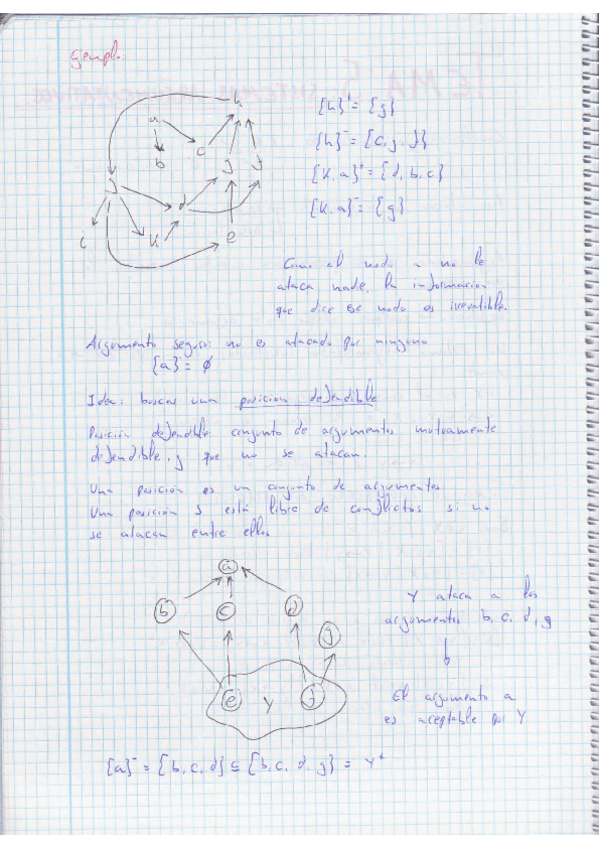 Ejemplo
h
a
c
b
j f
g
d
i
k
e
{h}⁺ = {g}
{h}⁻ = {c, j, f}
{k, a}⁺ = {d, b, c}
{k, a}⁻ = {g}
Como al nodo a no le
ataca nadie, la información
que dice ese nodo es irrevatible.
Argumento seguro: no es atacado por ninguno
{a}⁻ = ∅
Idea: buscar una posición defendible
Posición defendible: conjunto de argumentos mutuamente
defendible, y que no se atacan.
Una posición es un conjunto de argumentos
Una posición S está libre de conflictos si no
se atacan entre ellos
a
b c d
g
e Y f
Y ataca a los
argumentos b, c, d, g
El argumento a
es aceptable por Y
{a}⁻ = {b, c, d} ⊆ {b, c, d, g} = Y⁺